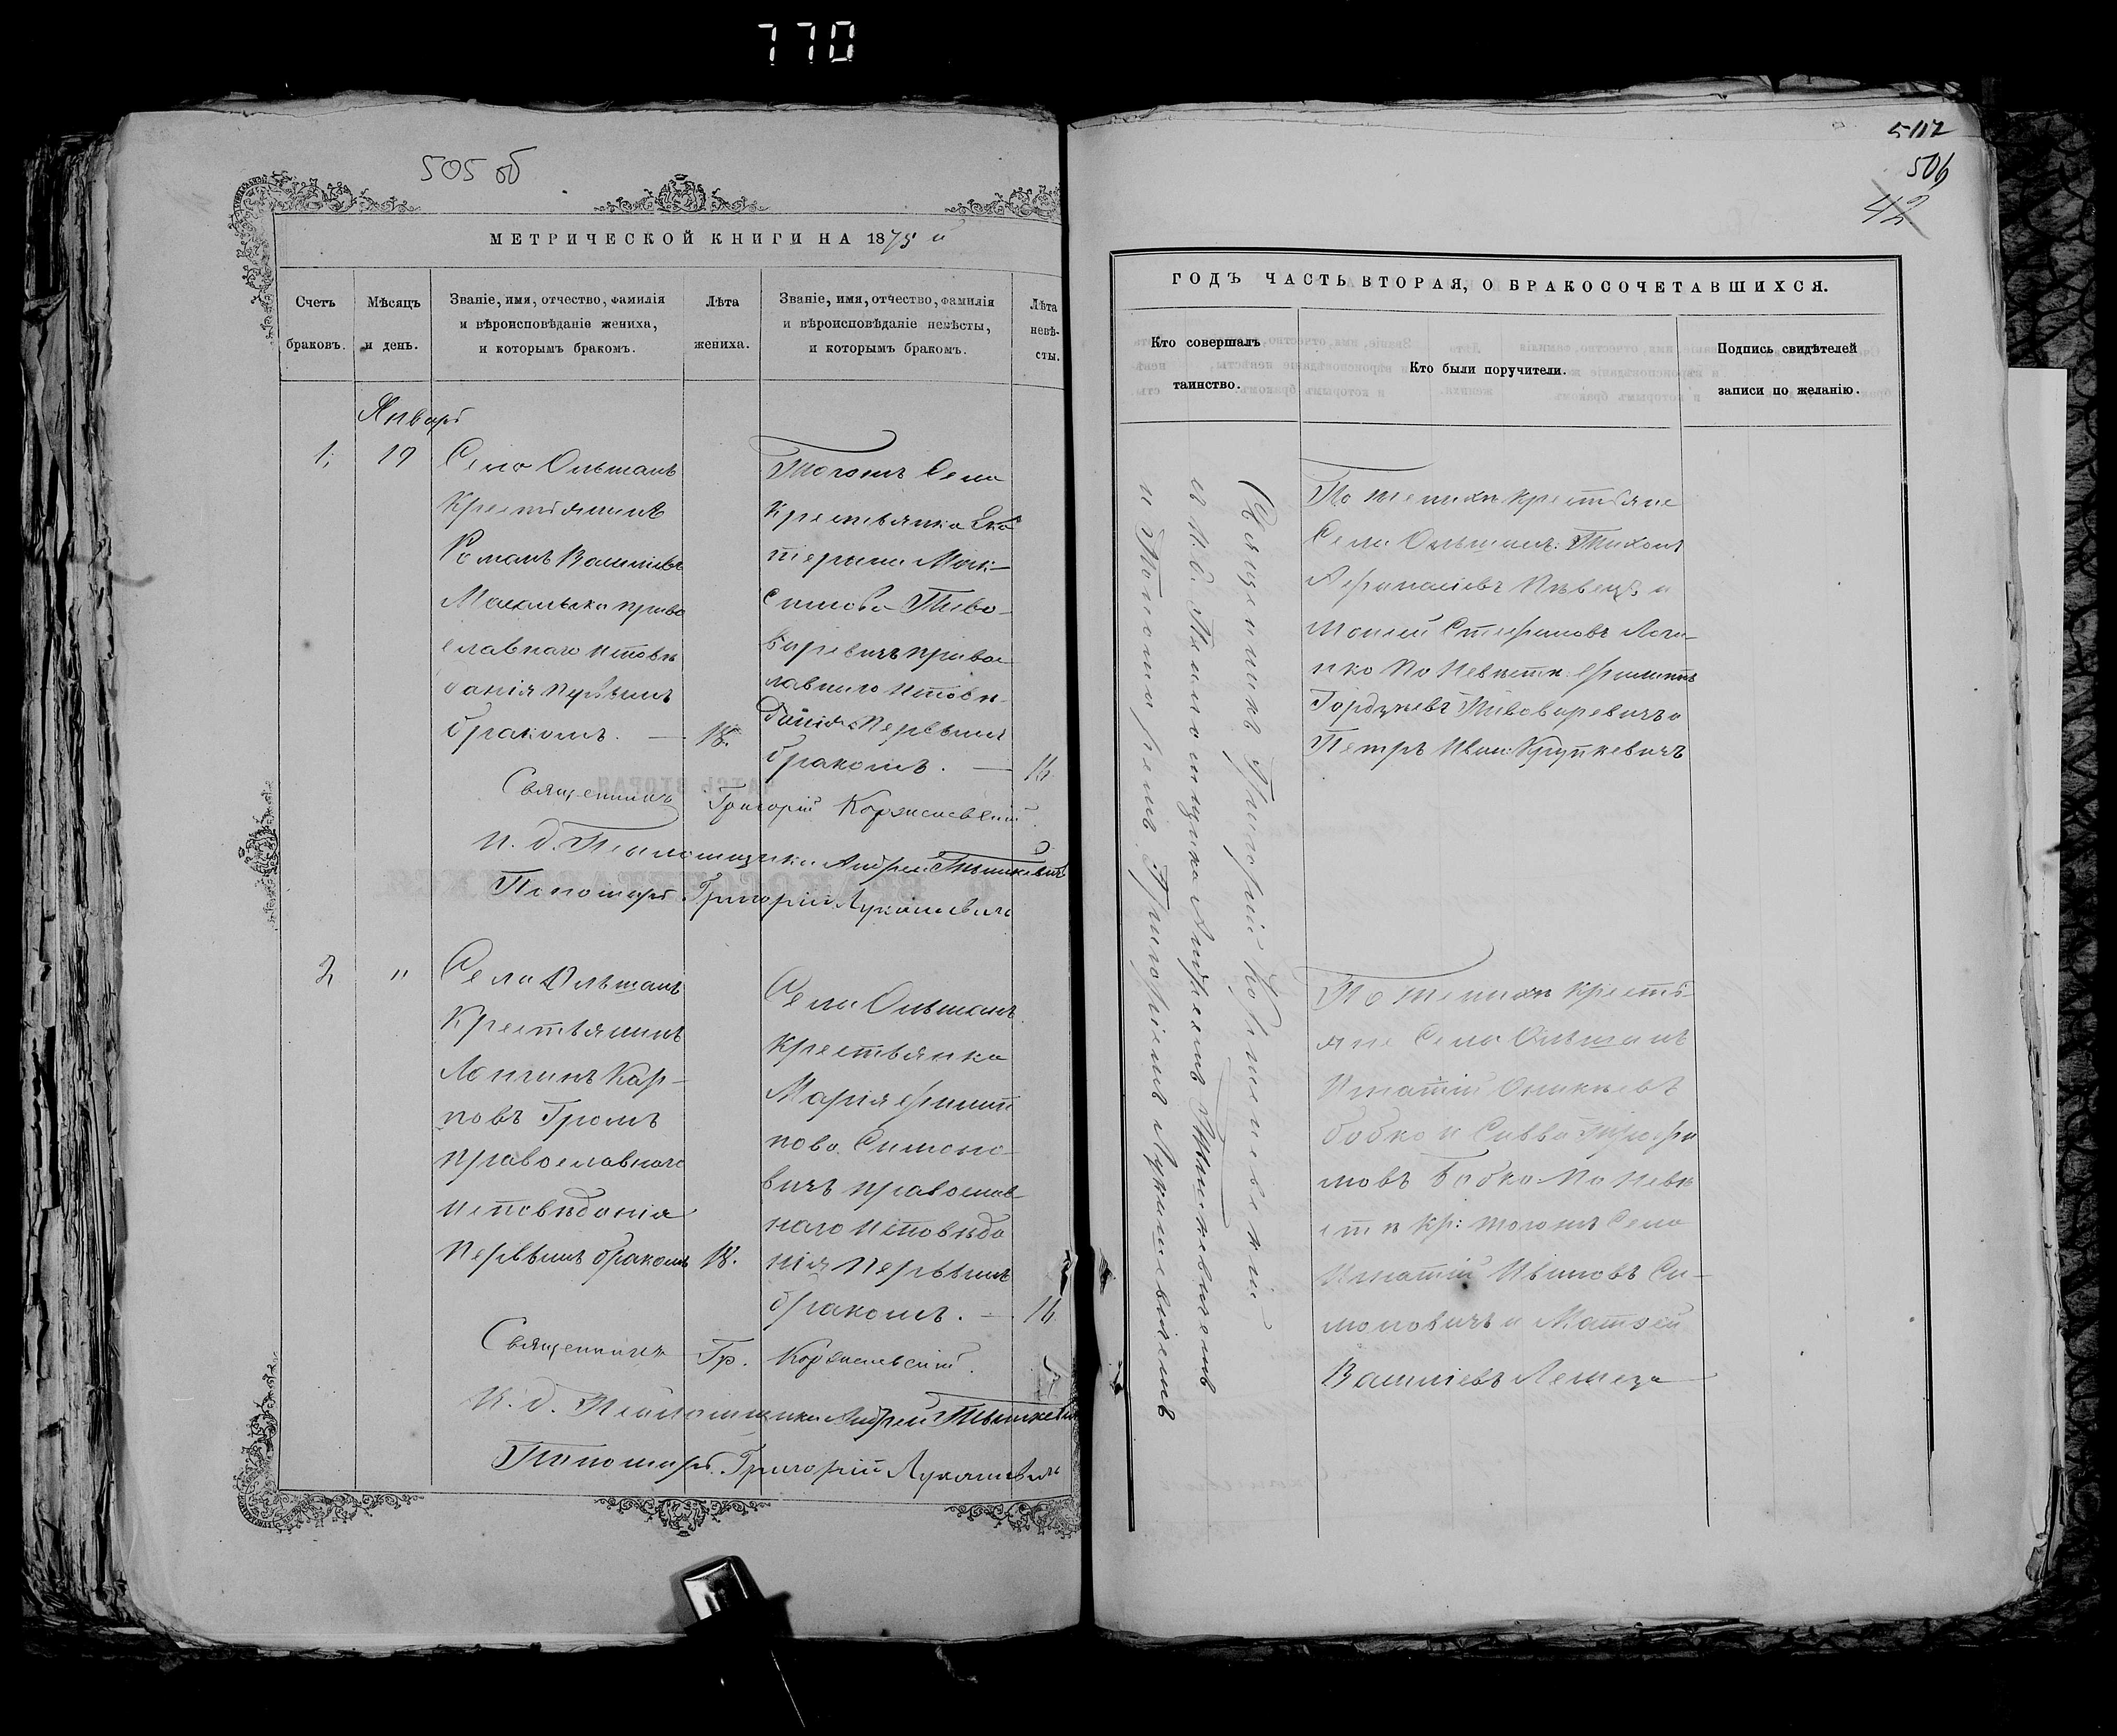 770
505 об
МЕТРИЧЕСКОЙ КНИГИ НА 1875 й
Счетъ браковъ.
Мѣсяцъ и день.
Званіе, имя, отчество, фамилія
и вѣроисповѣданіе жениха,
и которымъ бракомъ.
Лѣта
жениха.
Званіе, имя, отчество, фамилія
и вѣроисповѣданіе невѣсты,
и которымъ бракомъ.
Лѣта
невѣ-
сты.
Январь
1,
19
Села Ольшанъ
Крестьянинъ
Романъ Василіевъ
православнаго исповѣ
данія первымъ
бракомъ. —
18.
Тогожъ Села
Крестьянка Ека
терина Мак-
симова Пиво-
варевичъ правос
лавнаго исповѣ-
данія первымъ
бракомъ. —
16
Священникъ Григорій Корженевскій
И. д. Псаломщика Андрей Тышкевичъ
Пономарь Григорій Лукашевичъ
2,
"
Села Ольшанъ
Крестьянинъ
Лонгинъ Кар-
повъ Громъ
православнаго
исповѣданія
первымъ бракомъ
18.
Села Ольшанъ
крестьянка
Марія Филип
пова Симоно-
вичъ православ-
наго исповѣда
нія первымъ
бракомъ. —
16
Священникъ Гр. Корженевскій.
И. д. Псаломщика Андрей Тышкевичъ
Пономарь Григорій Лукашевичъ
5112
506
42
ГОДЪ ЧАСТЬ ВТОРАЯ, О БРАКОСОЧЕТАВШИХСЯ.
Кто совершалъ
таинство.
Кто были поручители.
Подпись свидѣтелей
записи по желанію.
Священникъ Григорій Корженевскій
съ И. д. Псаломщика Андреемъ Тышкевичемъ
и Пономаремъ Григоріемъ Лукашевичемъ
По женихѣ крестьяне
Села Ольшанъ: Тихонъ
Афанасіевъ Пѣвецъ и
Моисей Стефановъ
по невѣстѣ: Филиппъ
Гордѣевъ Пивоваревичъ и
Петръ Иван: Крупкевичъ
По женихѣ кресть-
яне Села Ольшанъ
Игнатій
Бобко и Савва Трофи
мовъ Бобко по невѣ
стѣ кр: тогожъ Села
Игнатій Ивановъ Си-
моновичъ и Матвѣй
Василіевъ